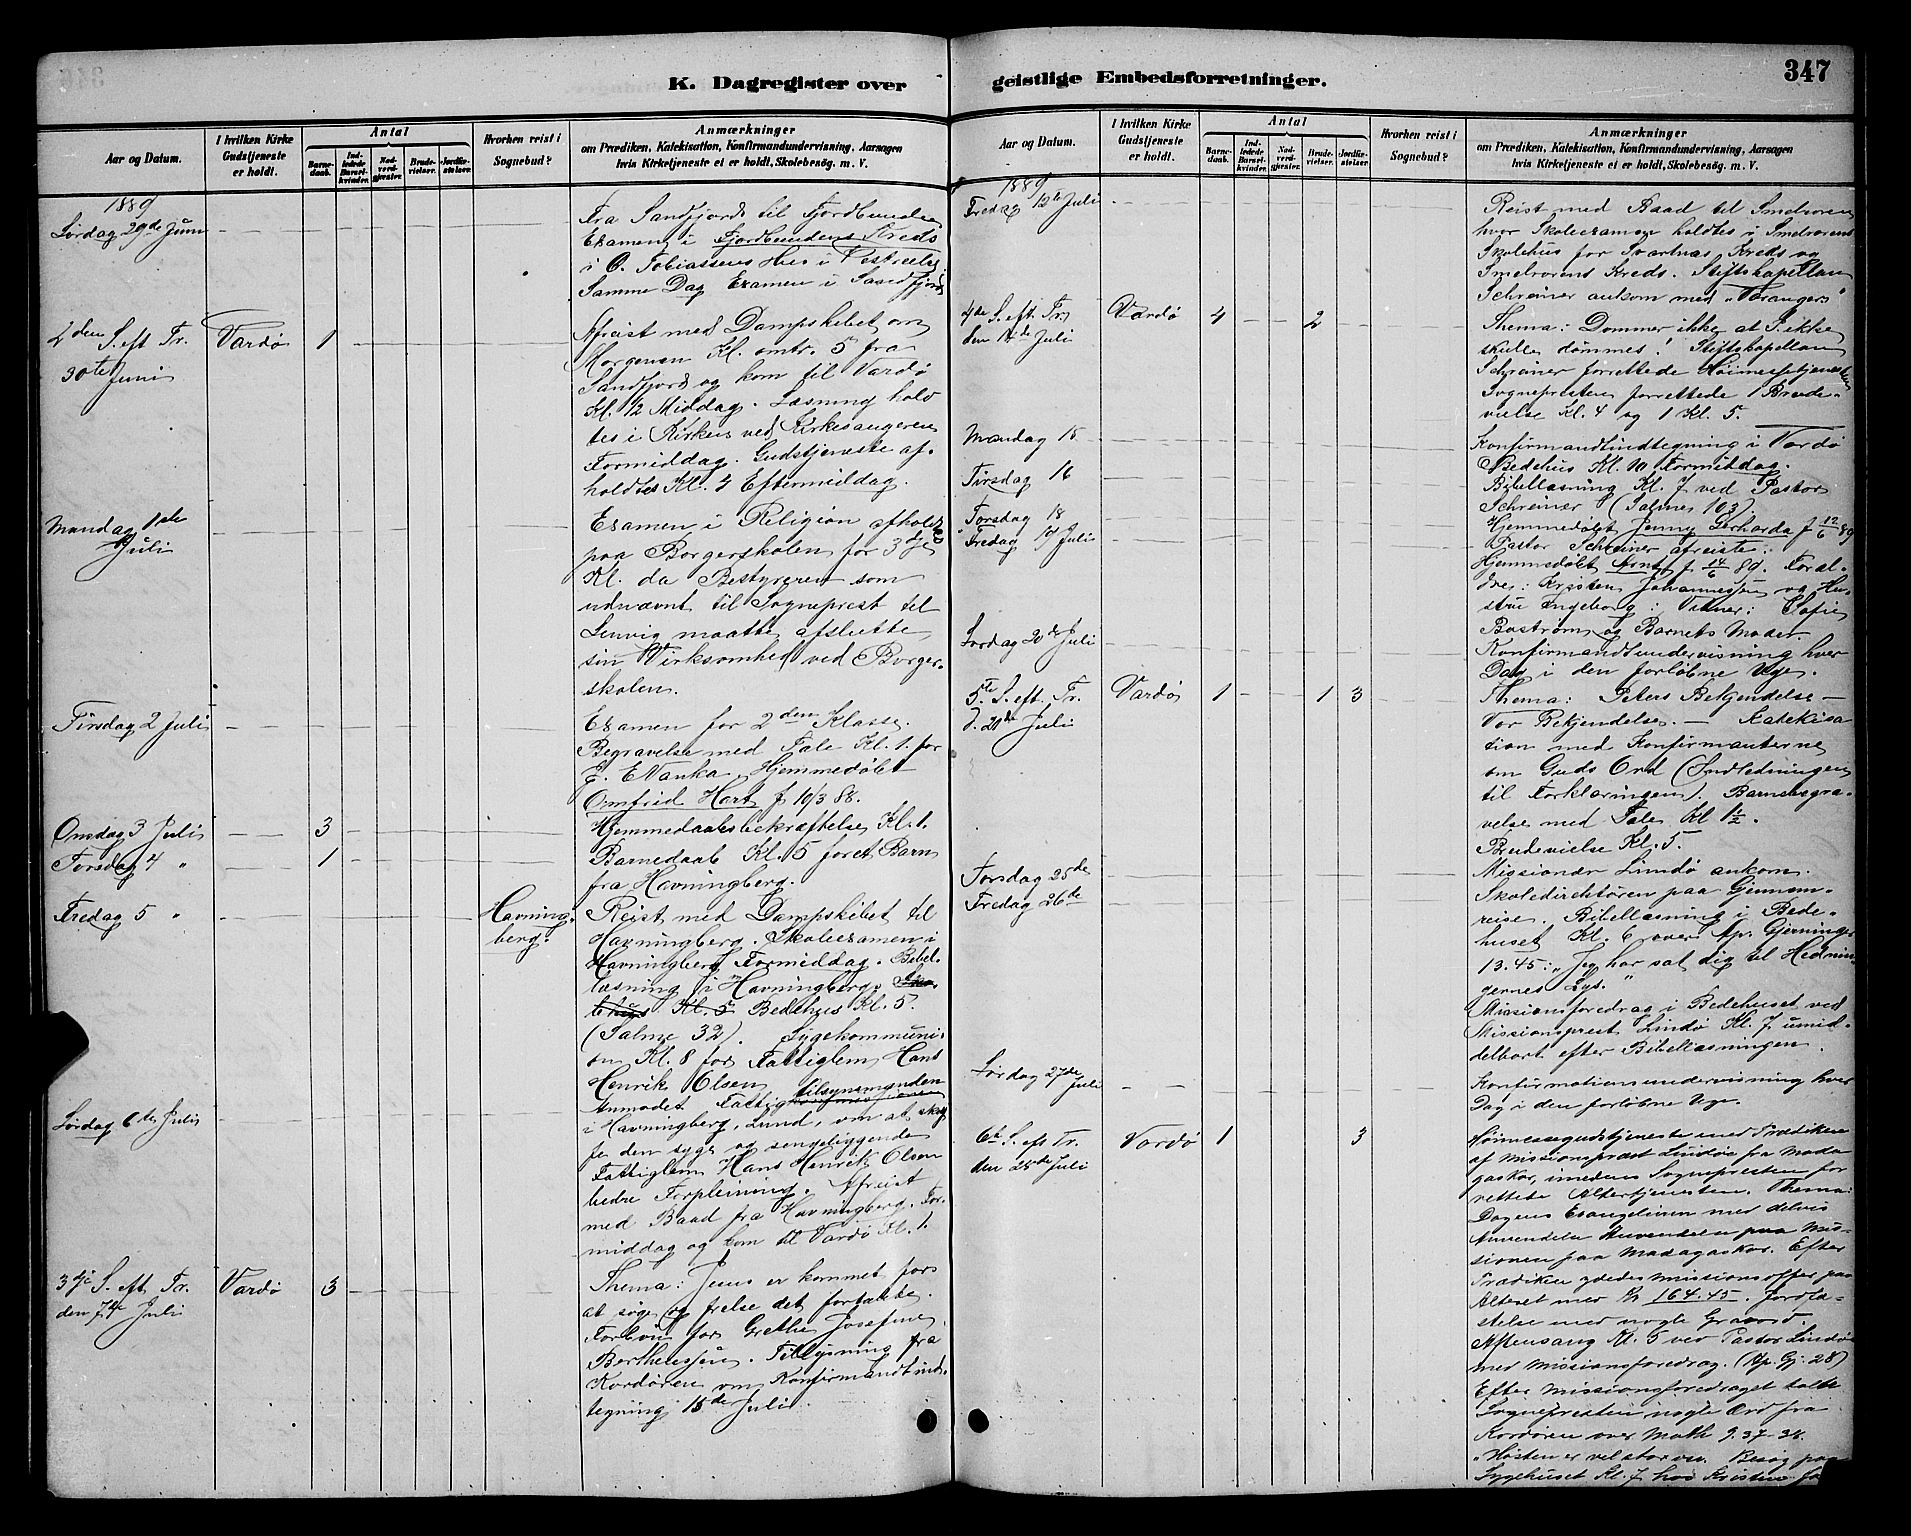 K. Dagregister over
Aar og Datum.
I hvilken Kirke Gudstjeneste er holdt.
Antal
Barnedaab.
Indledede Barselkvinder.
Nadverdgjester.
Brudevielser.
Jordfæstelser.
Hvorhen reist i Sognebud?
Anmærkninger
om Prædiken, Katekisation, Konfirmandundervisning, Aarsagen
hvis Kirketjeneste ei er holdt, Skolebesøg. m. V.
1889
Lørdag 29de Juni
Fra Sandfjord til Fjordbunden
Examen i Fjordbundens Kreds
i O. Tobiassens Hus i
Samme Dag Examen i Sandfjord
2den S. eft Tr. Vardø 1
30te Juni
Afreist med Dampskibet om
Morgenen Kl. omtr. 5 fra
Sandfjord og kom til Vardø
Kl. 12 Middag. Læsning hold
tes i Kirken ved Kirkesangeren
Formiddag. Gudstjeneste af-
holdtes Kl. 4 Eftermiddag.
Mandag 1ste
Juli
Examen i Religion afholdtes
paa Borgerskolen for 3dje
Kl. da Bestyreren som
udnævnt til Sogneprest til
Lenvig maatte afslutte
sin Virksomhed ved Borger-
skolen.
Tirsdag 2 Juli
Examen for 2den Klasse.
Begravelse med Tale Kl. 1. for
Hjemmedøbt
Omfrid Hart f 10/3 88.
Onsdag 3 Juli 3
Hjemmedaabsbekræftelse Kl. 1.
Torsdag 4 " 1
Barnedaab Kl. 5 for et Barn
fra Havningberg.
Fredag 5 " Havning-
berg.
Reist med Dampskibet til
Havningberg. Skoleexamen i
Havningberg Formiddag. Bibel-
læsning i Havningbergs
Kl. 5 Bedehus Kl. 5.
(Salme 32). Sygekommuni-
on Kl. 8 for Fattiglem Hans
Henrik Olsen
Anmodet Fattigtilsynsmanden
i Havningberg, Lund, om at skaf
fe den syge og sengeliggende
Fattiglem Hans Henrik Olsen
bedre Forpleining. Afreist
Lørdag 6te Juli
med Baad fra Havningberg For-
middag og kom til Vardø Kl. 1.
3dje S. eft. Tr. Vardø 3
den 7de Juli
Thema: Jesus er kommet for
at søge og frelse det fortabte.
Forbøn for Grethe Josefine
Berthelssen. Tillysning fra
Kordøren om Konfirmandtind-
tegning 15de Juli.
geistlige Embedsforretninger.
347
Aar og Datum.
I hvilken Kirke Gudstjeneste er holdt.
Antal
Barnedaab.
Indledede Barselkvinder.
Nadverdgjester.
Brudevielser.
Jordfæstelser.
Hvorhen reist i Sognebud?
Anmærkninger
om Prædiken, Katekisation, Konfirmandundervisning, Aarsagen
hvis Kirketjeneste ei er holdt, Skolebesøg. m. V.
1889
Fredag 12te Juli
Reist med Baad til Smelroren
hvor Skoleexamen holdtes i Smelrorens
Skolehus for Svartnas Kreds og
Smelrorens Kreds. Stiftskapellan
Schreiner ankom med "Varanger"
4de S. eft. Tr. Vardø 4 2
den 14de Juli
Thema: Dommer ikke at I ikke
skulle dømmes! Stiftskapellan
Schreiner forrettede Høimessetjenesten
Sognepresten forrettede 1 Brude-
vielse Kl. 4 og 1 Kl. 5.
Mandag 15
Konfirmandtindtegning i Vardø
Bedehus Kl. 10 Formiddag.
Tirsdag 16
Bibellæsning Kl. 7 ved Pastor
Schreiner (Salme 103)
Torsdag 18
Hjemmedøbt Jenny Gerharda f 12/6 89
Fredag 19 Juli
Pastor Schreiner afreiste.
Hjemmedøbt Arnt f 14/6 89. Foræl-
dre: Kristen Johannessen og Hu-
stru Ingeborg: Vidner: Sofie
Bostrøm og Barnets Moder
Lørdag 20de Juli
Konfirmandtundervisning hver
Dag i den forløbne Uge.
5te S. eft. Tr. Vardø 1 1 3
d. 21de Juli
Thema: Peters Bekjendelse –
Vor Bekjendelse. – Katekisa
tion med Konfirmanterne
om Guds Ord (Indledningen
til Forklaringen). Barnebegra-
velse med Tale Kl 1½.
Brudevielse Kl. 5.
Torsdag 25de
Missionær Lindø ankom.
Fredag 26de
Skoledirektøren paa Gjennem-
reise. Bibellæsning i Bede-
huset Kl. 6 over Ap. Gjerninger
13.45: "Jeg har sat dig til Hednin-
gernes Lys."
Missionsforedrag i Bedehuset ved
Missionsprest Lindø Kl. 7 umid-
delbart efter Bibellæsningen.
Lørdag 27de
Juli
Konfirmationsundervisning hver
Dag i den forløbne Uge.
6te S. eft Tr. Vardø 1 3
den 28de Juli
Høimessegudstjeneste med Prædiken
af Missionsprest Lindø fra Mada
gaskar, imedens Sognepresten for
rettede Altertjenesten. Thema:
Dagens Evangelium med delvis
Anvendelse paa Mis-
sionen paa Madagaskar. Efter
Prædiken ydedes Missionsoffer paa
Alteret med Kr 164.45. Jordfæ-
stelse med nogle Gravord.
Aftensang Kl. 5 ved Pastor Lindø
med Missionsforedrag. (Ap. Gj. 28)
Efter Missionsforedraget talte
Sognepresten nogle Ord fra
Kordøren over Math 9.37-38.
"Høsten er vel stor osv. Besøg paa
Sygehuset Kl. 7 hos Kristine